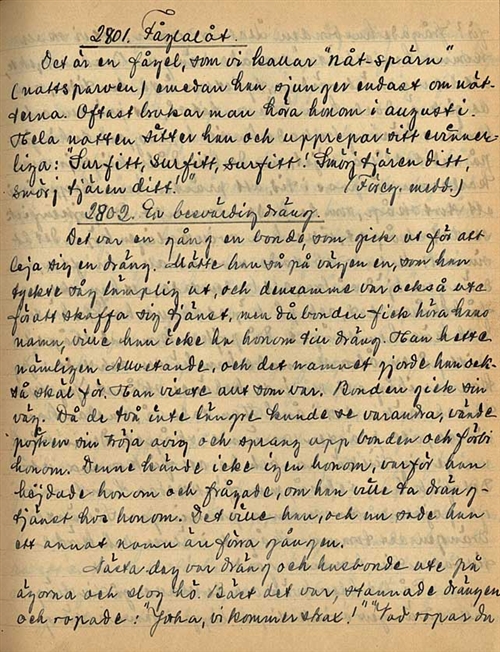 2801. Fågelalåt.
Det är en fågel, som vi kallar "nåt-spärn"
(nattsparven) emedan han sjunger endast om nät-
terna. Oftast brukar man höra honom i augusti.
Hela natten sitter han och upprepar sitt evinner-
liga: Surfitt, surfitt, surfitt! Smörj tjären ditt,
smörj tjären ditt!" (Föreg. medd.)
2802. En besvärdig dräng.
Det var en gång en bonde, som gick ut för att
leja sig en dräng. Mötte han så på vägen en, som han
tyckte såg lämplig ut, och densamme var också ute
för att skaffa sig tjänst, men då bonden fick höra hans
namn, ville han icke ha honom till dräng. Han hette
nämligen Allvetande, och det namnet gjorde han ock-
så skäl för. Han visste allt som var. Bonden gick sin
väg. Då de två inte längre kunde se varandra, vände
pojken sin tröja avig och sprang upp bonden och förbi
honom. Denne kände icke igen honom, varför han
hejdade honom och frågade, om han ville ta dräng-
tjänst hos honom. Det ville han, och nu sade han
ett annat namn än förra gången.
Nästa dag var dräng och husbonde ute på
ägorna och slog hö. Bäst det var, stannade drängen
och ropade: "Joha, vi kommer strax!" "Vad ropar du